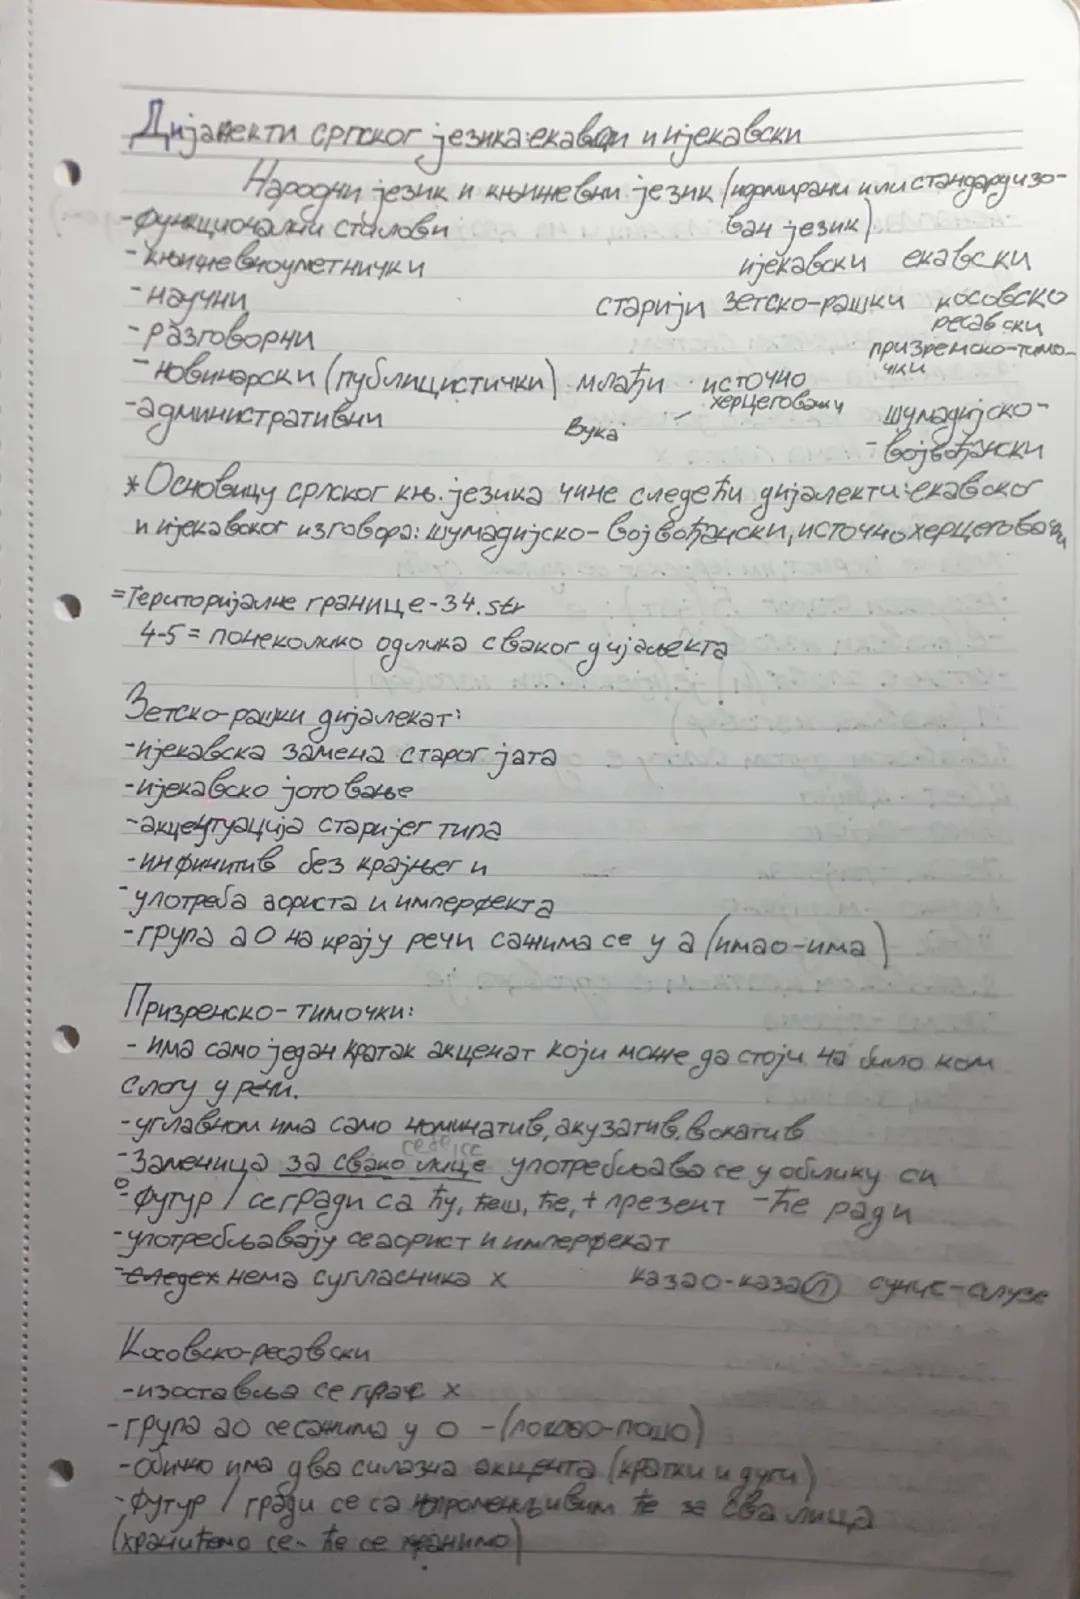 Дијалекти српског језика:екавски и ијекавски
Народни језик и књижевни језик (нормирани или стандардизо-
-функционални стилови
ван језик)
-књижевноуметнички
ијекавски екавски
-научни
старији зетско-рашки косовско
ресавски
-разговорни
призренско-тимо-
чки
-новинарски (публицистички) млађи источно
херцеговачки
-административни
Вука
шумадијско-
-војвођански
*Основицу српског књ. језика чине следећи дијалекти:екавског
и ијекавског изговора: шумадијско-војвођански, источнохерцеговачки
=Територијалне границе-34.str
4-5= понеколико одлика сваког дијалекта
Зетско-рашки дијалекат:
-ијекавска замена старог јата
-ијекавско јотовање
-акцентуација старијег типа
-инфинитив без крајњег и
-употреба аориста и имперфекта
-група аО на крају речи сажима се у а (имао-има)
Призренско-тимочки:
- има само један кратак акценат који може да стоји на било ком
слогу у речи.
-углавном има само номинатив, акузатив, вокатив
себе, се
-Заменица за свако лице употребљава се у облику си
-футур I се гради са ћу, ћеш, ће, + презент -ће ради
-употребљавају се аорист и имперфекат
-следех нема сугласника х казао-казал
Косовско-ресавски
-изоставља се глас х
-група ао се сажима у о -(пошао-пошо)
-обично има два силазна акцента (кратки и дуги)
-футур I гради се са непроменљивим ће за сва лица
(хранићемо се- ће се хранимо)